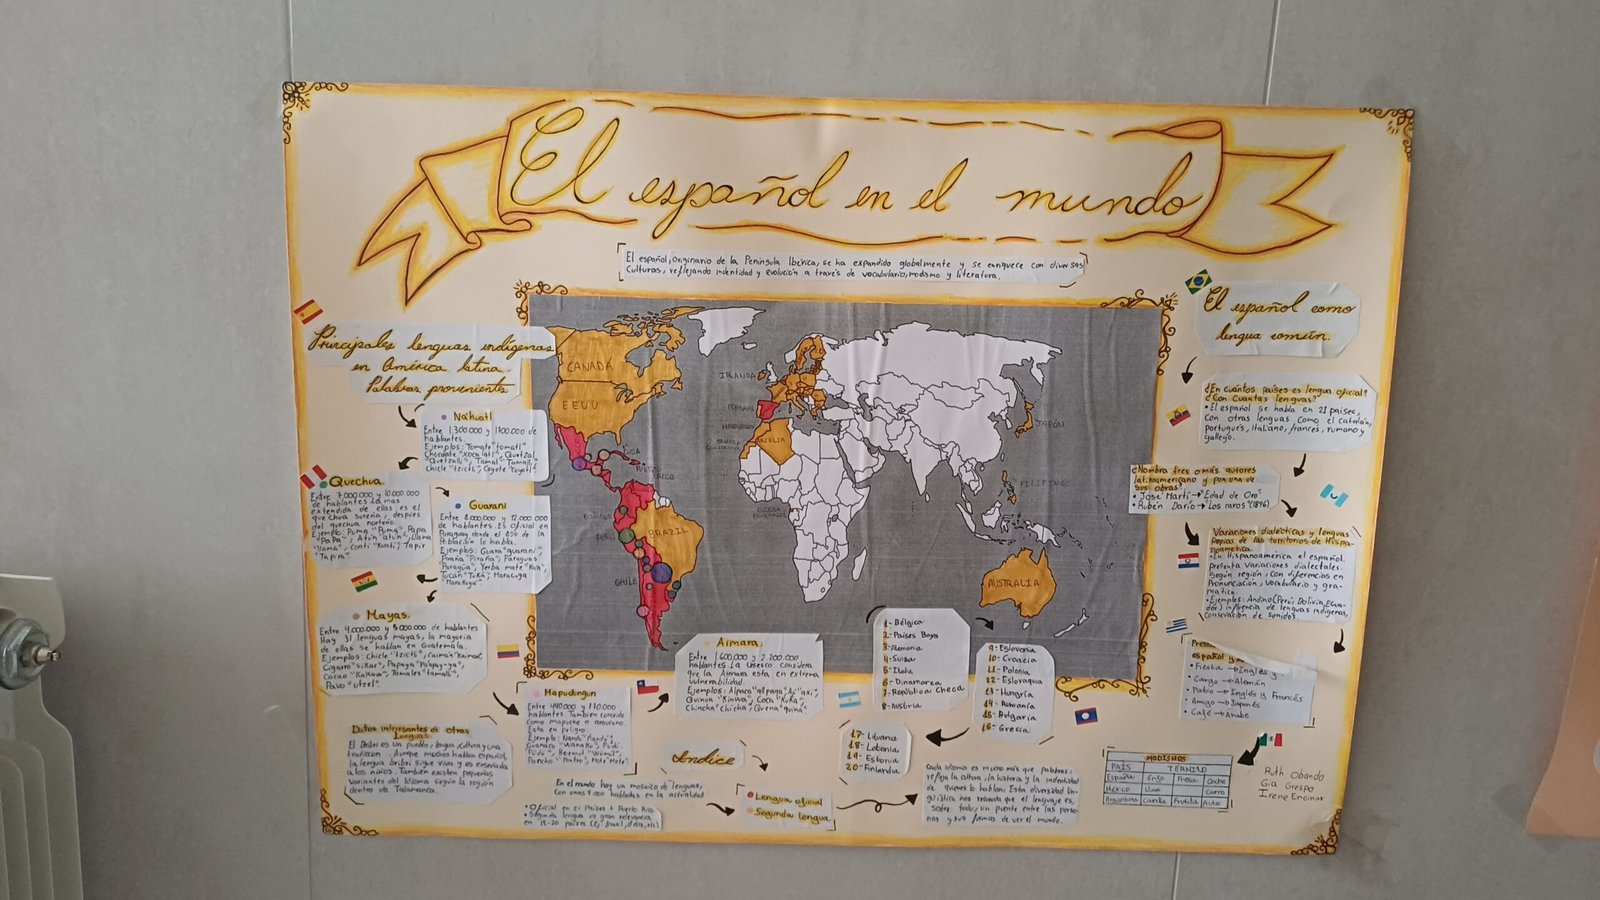 El español en el mundo
El español, originario de la Península Ibérica, se ha expandido globalmente y se enriquece con diversas
culturas, reflejando indentidad y evolución a través de vocabulario, modismo y literatura.
Principales lenguas indígenas
en América latina.
Palabras provenientes
Náhuatl
Entre 1,300.000 y 1700.000 de
hablantes.
Ejemplos: Tomate "tomatl"
Chocolate "xocolatl", Quetzal
"Quetzalli", Tamal "Tamalli",
chicle "tzictli", Coyote "coyotl"
Quechua.
Entre 7.000.000 y 10.000.000
de hablantes. La más
extendida de ellas es el
quechua sureño, después
del quechua norteño.
Ejemplo: Puma "Puma", Papa
"PaPa", Llama
"llama", Coati "Kuati", Tapir
"Tapira"
Guaraní
Entre 8.000.000 y 12.000.000
de hablantes. ES oficial en
Paraguay donde el 85% de la
Población lo habla.
Ejemplos: Guara "guaraní",
Piraña "Piraña", Paraguas
"Paragua", Yerba mate "Kaa",
Tucán "TuKã", Maracuya
"MaraKuya"
Mayas.
Entre 4.000.000 y 5.000.000 de hablantes
Hay 31 lenguas mayas, la mayoría
de ellas se hablan en Guatemala.
Ejemplos: Chicle "tzictli", Caimán "Kaiman"
Cigarro "siKar", Papaya "Pa'pay-ya",
Cacao "KaKaw", Tamales "tamalli",
Pavo "utzel"
Mapudungun
Entre 440.000 y 770.000
hablantes. También conocido
como mapuche o araucano.
Esta en peligro.
Aimara.
Entre 1.600.000 y 2.200.000
hablantes. La Unesco considera
que la Aimara esta en extrema
vulnerabilidad.
Ejemplos: Alpaca "allpaca",
Quinua "Kinwa", Coca "KuKa",
Chincha "Chicha", Quena "quina"
Datos interesantes de otras
lenguas
El Bribri es un pueblo, lengua, cultura y una
tradición. Aunque muchos hablan español,
la lengua bribri sigue viva y es enseñada
a los niños. También existen pequeñas
variantes del idioma según la región
dentro de Talamanca.
CANADÁ
EEUU
CUBA
PUERTO
RICO
PERÚ
BRAZIL
CHILE
IRLANDA
ARGELIA
JAPÓN
FILIPINAS
AUSTRALIA
1- Bélgica
2- Países Bajos
3- Alemania
4- Suiza
5- Italia
6- Dinamarca
7- República Checa
8- Austria
9- Eslovenia
10- Croacia
11- Polonia
12- Eslovaquia
13- Hungría
14- Rumanía
15- Bulgaria
16- Grecia
17- Lituania
18- Letonia
19- Estonia
20- Finlandia
Indice
En el mundo hay un mosaico de lenguas,
con unas 7.000 habladas en la actualidad
• Oficial en 21 Países + Puerto Rico
• Segunda lengua de gran relevancia
en 15-20 países
Lengua oficial
Segunda lengua
Cada idioma es mucho más que palabras:
refleja la cultura, la historia y la indentidad
de quienes lo hablan. Esta diversidad lin-
güística nos recuerda que el lenguaje es,
sobre todo, un puente entre las perso-
nas y sus formas de ver el mundo.
El español como
lengua común.
¿En cuántos países es lengua oficial?
¿Con Cuántas lenguas?
• El español se habla en 21 países,
con otras lenguas como el catalán,
portugués, italiano, francés, rumano y
gallego.
¿Nombra tres o más autores
latinoamericano y pon una de
sus obras?
• José Martí → "Edad de Oro"
• Rubén Darío → "Los raros" (1896)
Variaciones dialécticas y lenguas
Propias de los territorios de Hispa-
noamerica.
• En Hispanoamérica el español
presenta variaciones dialectales
según región, con diferencias en
Pronunciación, vocabulario y gra-
matica.
• Ejemplos: Andino (Perú, Bolivia, Ecua-
dor) influencia de lenguas indígenas,
conservación de sonidos.
español y
• Fiestia → Inglés y
• Cargo → Alemán
• Patio → Inglés y Francés
• Amigo → Japonés
• Café → Arabe
MODISMOS
PAÍS TERMINO
España Fresa Coche
México Carro
Argentina Frutilla Auto
Ruth Obando
Gia Crespo
Irene Encinar